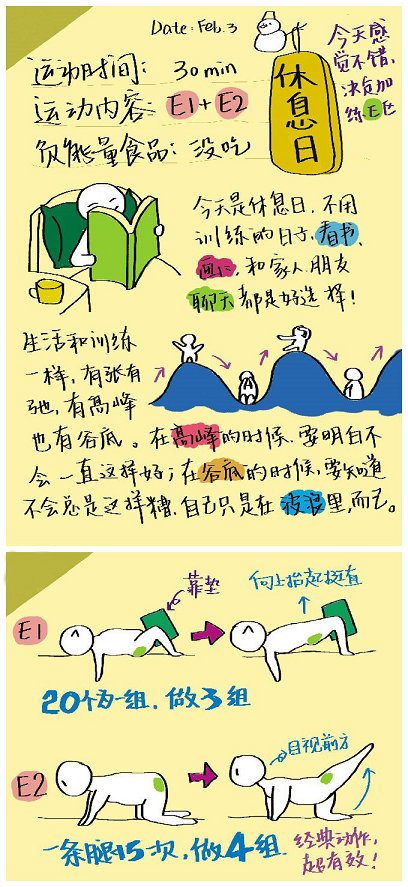 Date: Feb. 3
运动时间: 30 min
运动内容: E1+E2
负能量食品: 没吃
休息日
今天感
觉不错,
决定加
练E臣
今天是休息日,不用
训练的日子,看书、
画画,和家人朋友
聊天都是好选择!
生活和训练
一样,有张有
弛,有高峰
也有谷底。在高峰的时候,要明白不
会一直这样好;在谷底的时候,要知道
不会总是这样糟,自己只是在波浪里,而已。
E1
靠垫
向上抬起挺直
20个为一组,做3组
E2
目视前方
一条腿15次,做4组
经典动作,
超有效!